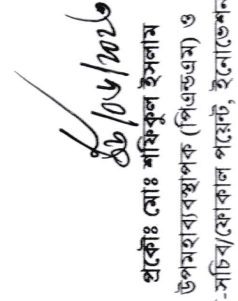 প্রকৌঃ মোঃ শফিকুল ইসলাম
উপমহাব্যবস্থাপক (পিএন্ডএম) ও
-সচিব/ফোকাল পয়েন্ট, ইনোভেশন